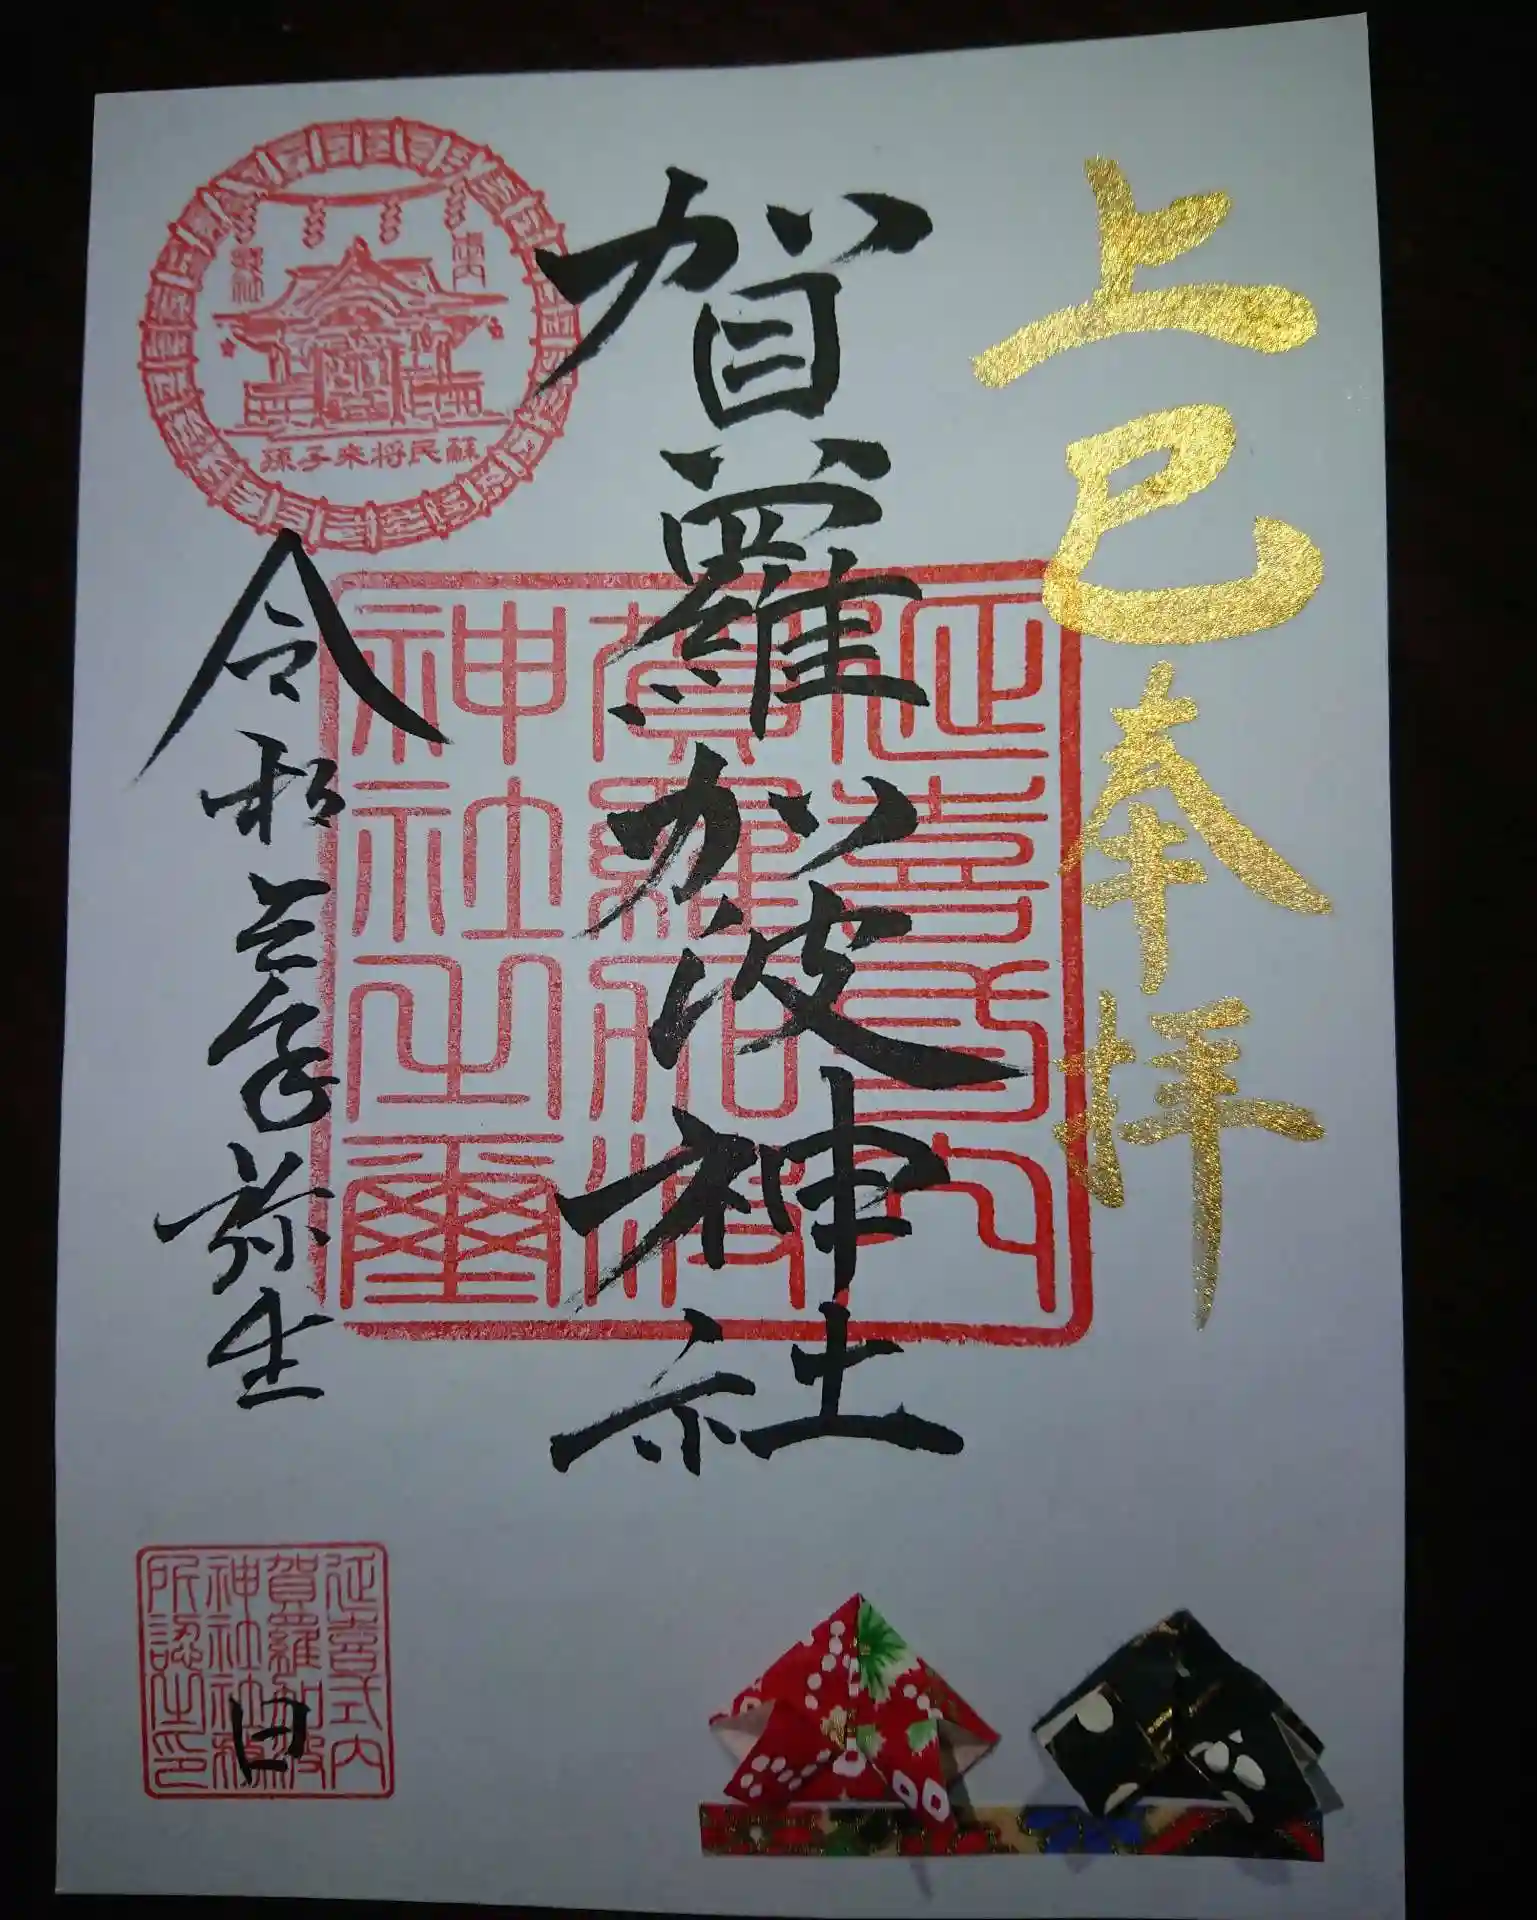 上巳奉拝
賀羅加波神社
令和三年弥生
日
蘇民将来子孫
延喜式内
賀羅加波
神社之璽
延喜式内
賀羅加波
神社社務
所認之印